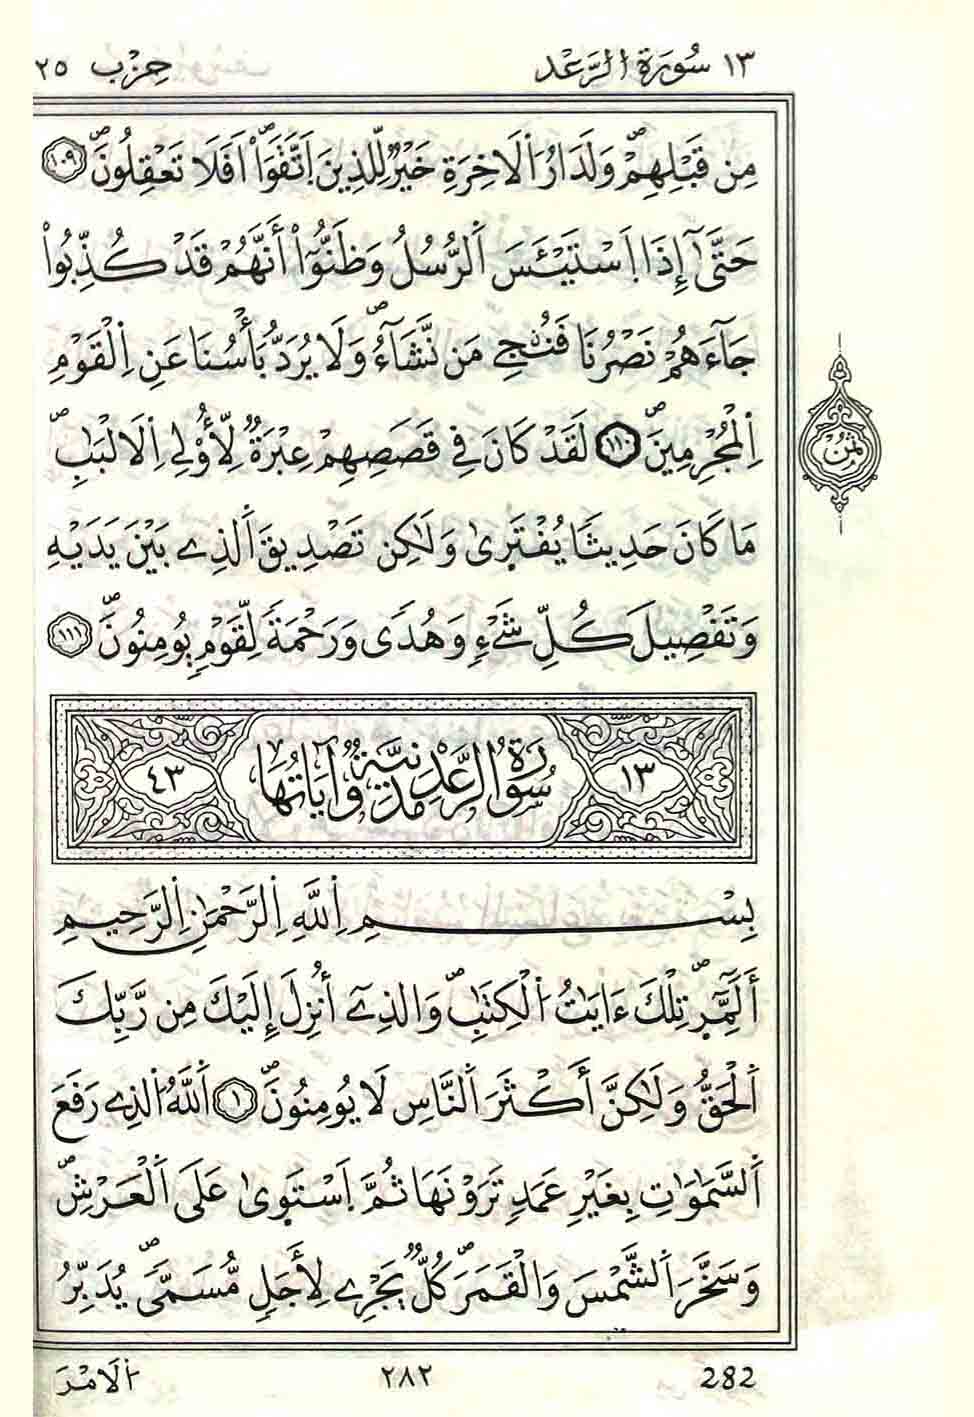 ١٣ سُورَةُ الرَّعْدِ حِزْب ٢٥
مِن قَبْلِهِمْۖ وَلَدَارُ اُ۬لَاخِرَةِ خَيْرٞ لِّلذِينَ اَ۪تَّقَوَاْۖ اَفَلَا تَعْقِلُونَۖ ١٠٩
حَتَّىٰٓ إِذَا اَ۪سْتَيْـَٔسَ اَ۬لرُّسُلُ وَظَنُّوٓاْ أَنَّهُمْ قَدْ كُذِّبُواْ
جَآءَهُمْ نَصْرُنَا فَنُۨجِے مَن نَّشَآءُۖ وَلَا يُرَدُّ بَأْسُنَا عَنِ اِ۬لْقَوْمِ
اِ۬لْمُجْرِمِينَۖ ١١٠ لَقَدْ كَانَ فِے قَصَصِهِمْ عِبْرَةٞ لِّأُوْلِے اِ۬لَالْبَٰبِۖ
مَا كَانَ حَدِيثاٗ يُفْتَر۪ىٰ وَلَٰكِن تَصْدِيقَ اَ۬لذِے بَيْنَ يَدَيْهِ
وَتَفْصِيلَ كُلِّ شَےْءٖ وَهُدىٗ وَرَحْمَةٗ لِّقَوْمٖ يُومِنُونَۖ ١١١
ثُمُن
١٣ سُورَةُ الرَّعْدِ مَدَنِيَّةٌ وَآيَاتُهَا ٤٣
بِسْمِ اِ۬للَّهِ اِ۬لرَّحْمَٰنِ اِ۬لرَّحِيمِ
أَلَٓمِّٓر۪ۖ تِلْكَ ءَايَٰتُ اُ۬لْكِتَٰبِۖ وَالذِےٓ أُنزِلَ إِلَيْكَ مِن رَّبِّكَ
اَ۬لْحَقُّ وَلَٰكِنَّ أَكْثَرَ اَ۬لنَّاسِ لَا يُومِنُونَۖ ١ اَ۬للَّهُ اُ۬لذِے رَفَعَ
اَ۬لسَّمَٰوَٰتِ بِغَيْرِ عَمَدٖ تَرَوْنَهَا ثُمَّ اَ۪سْتَو۪ىٰ عَلَى اَ۬لْعَرْشِۖ
وَسَخَّرَ اَ۬لشَّمْسَ وَالْقَمَرَۖ كُلّٞ يَجْرِے لِأَجَلٖ مُّسَمّىٗۖ يُدَبِّرُ
282 ٢٨٢ اُ۬لَامْرَ